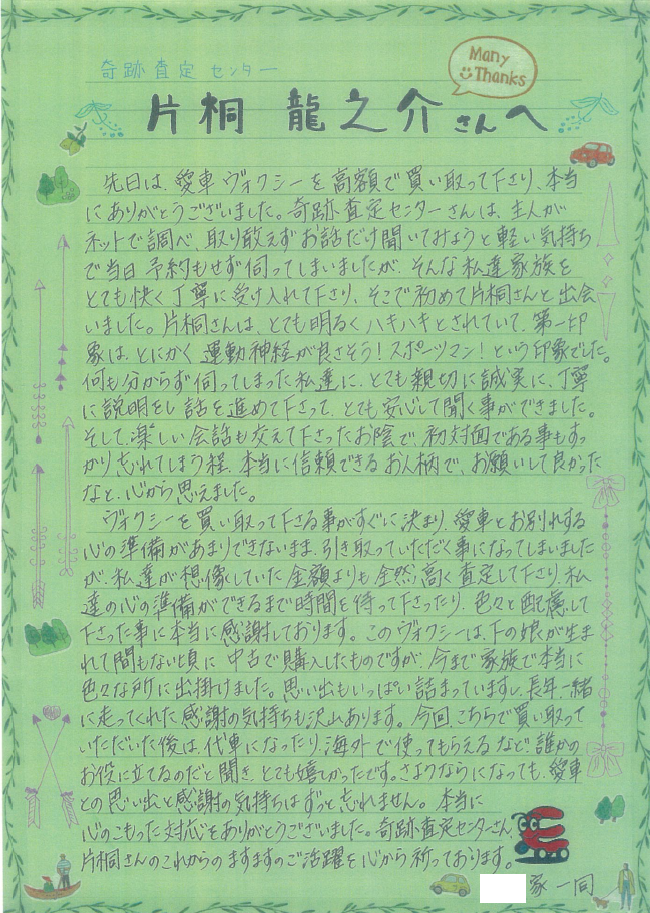 奇跡査定センター
Many
Thanks
片桐 龍之介さんへ
先日は、愛車ヴォクシーを高額で買い取って下さり、本当
にありがとうございました。奇跡査定センターさんは、主人が
ネットで調べ、取り敢えずお話だけ聞いてみようと軽い気持ち
で当日予約もせず伺ってしまいましたが、そんな私達家族を
とても快く丁寧に受け入れて下さり、そこで初めて片桐さんと出会
いました。片桐さんは、とても明るくハキハキとされていて、第一印
象は、とにかく運動神経が良さそう!スポーツマン!という印象でした。
何も分からず伺ってしまった私達に、とても親切に誠実に、丁寧
に説明をし話を進めて下さって、とても安心して聞く事ができました。
そして、楽しい会話も交えて下さったお陰で、初対面である事もすっ
かり忘れてしまう程、本当に信頼できるお人柄で、お願いして良かった
なと、心から思えました。
ヴォクシーを買い取って下さる事がすぐに決まり、愛車とお別れする
心の準備があまりできないまま、引き取っていただく事になってしまいました
が、私達が想像していた金額よりも全然高く査定して下さり、私
達の心の準備ができるまで時間を待って下さったり、色々と配慮して
下さった事に本当に感謝しております。このヴォクシーは、下の娘が生ま
れて間もない頃に中古で購入したものですが、今まで家族で本当に
色々な所に出掛けました。思い出もいっぱい詰まっていますし、長年一緒
に走ってくれた感謝の気持ちも沢山あります。今回、こちらで買い取って
いただいた後は、代車になったり、海外で使ってもらえるなど、誰かの
お役に立てるのだと聞き、とても嬉しかったです。さよならになっても、愛車
との思い出と感謝の気持ちはずっと忘れません。本当に
心のこもった対応をありがとうございました。奇跡査定センターさん、
片桐さんのこれからのますますのご活躍を心から祈っております。
家一同